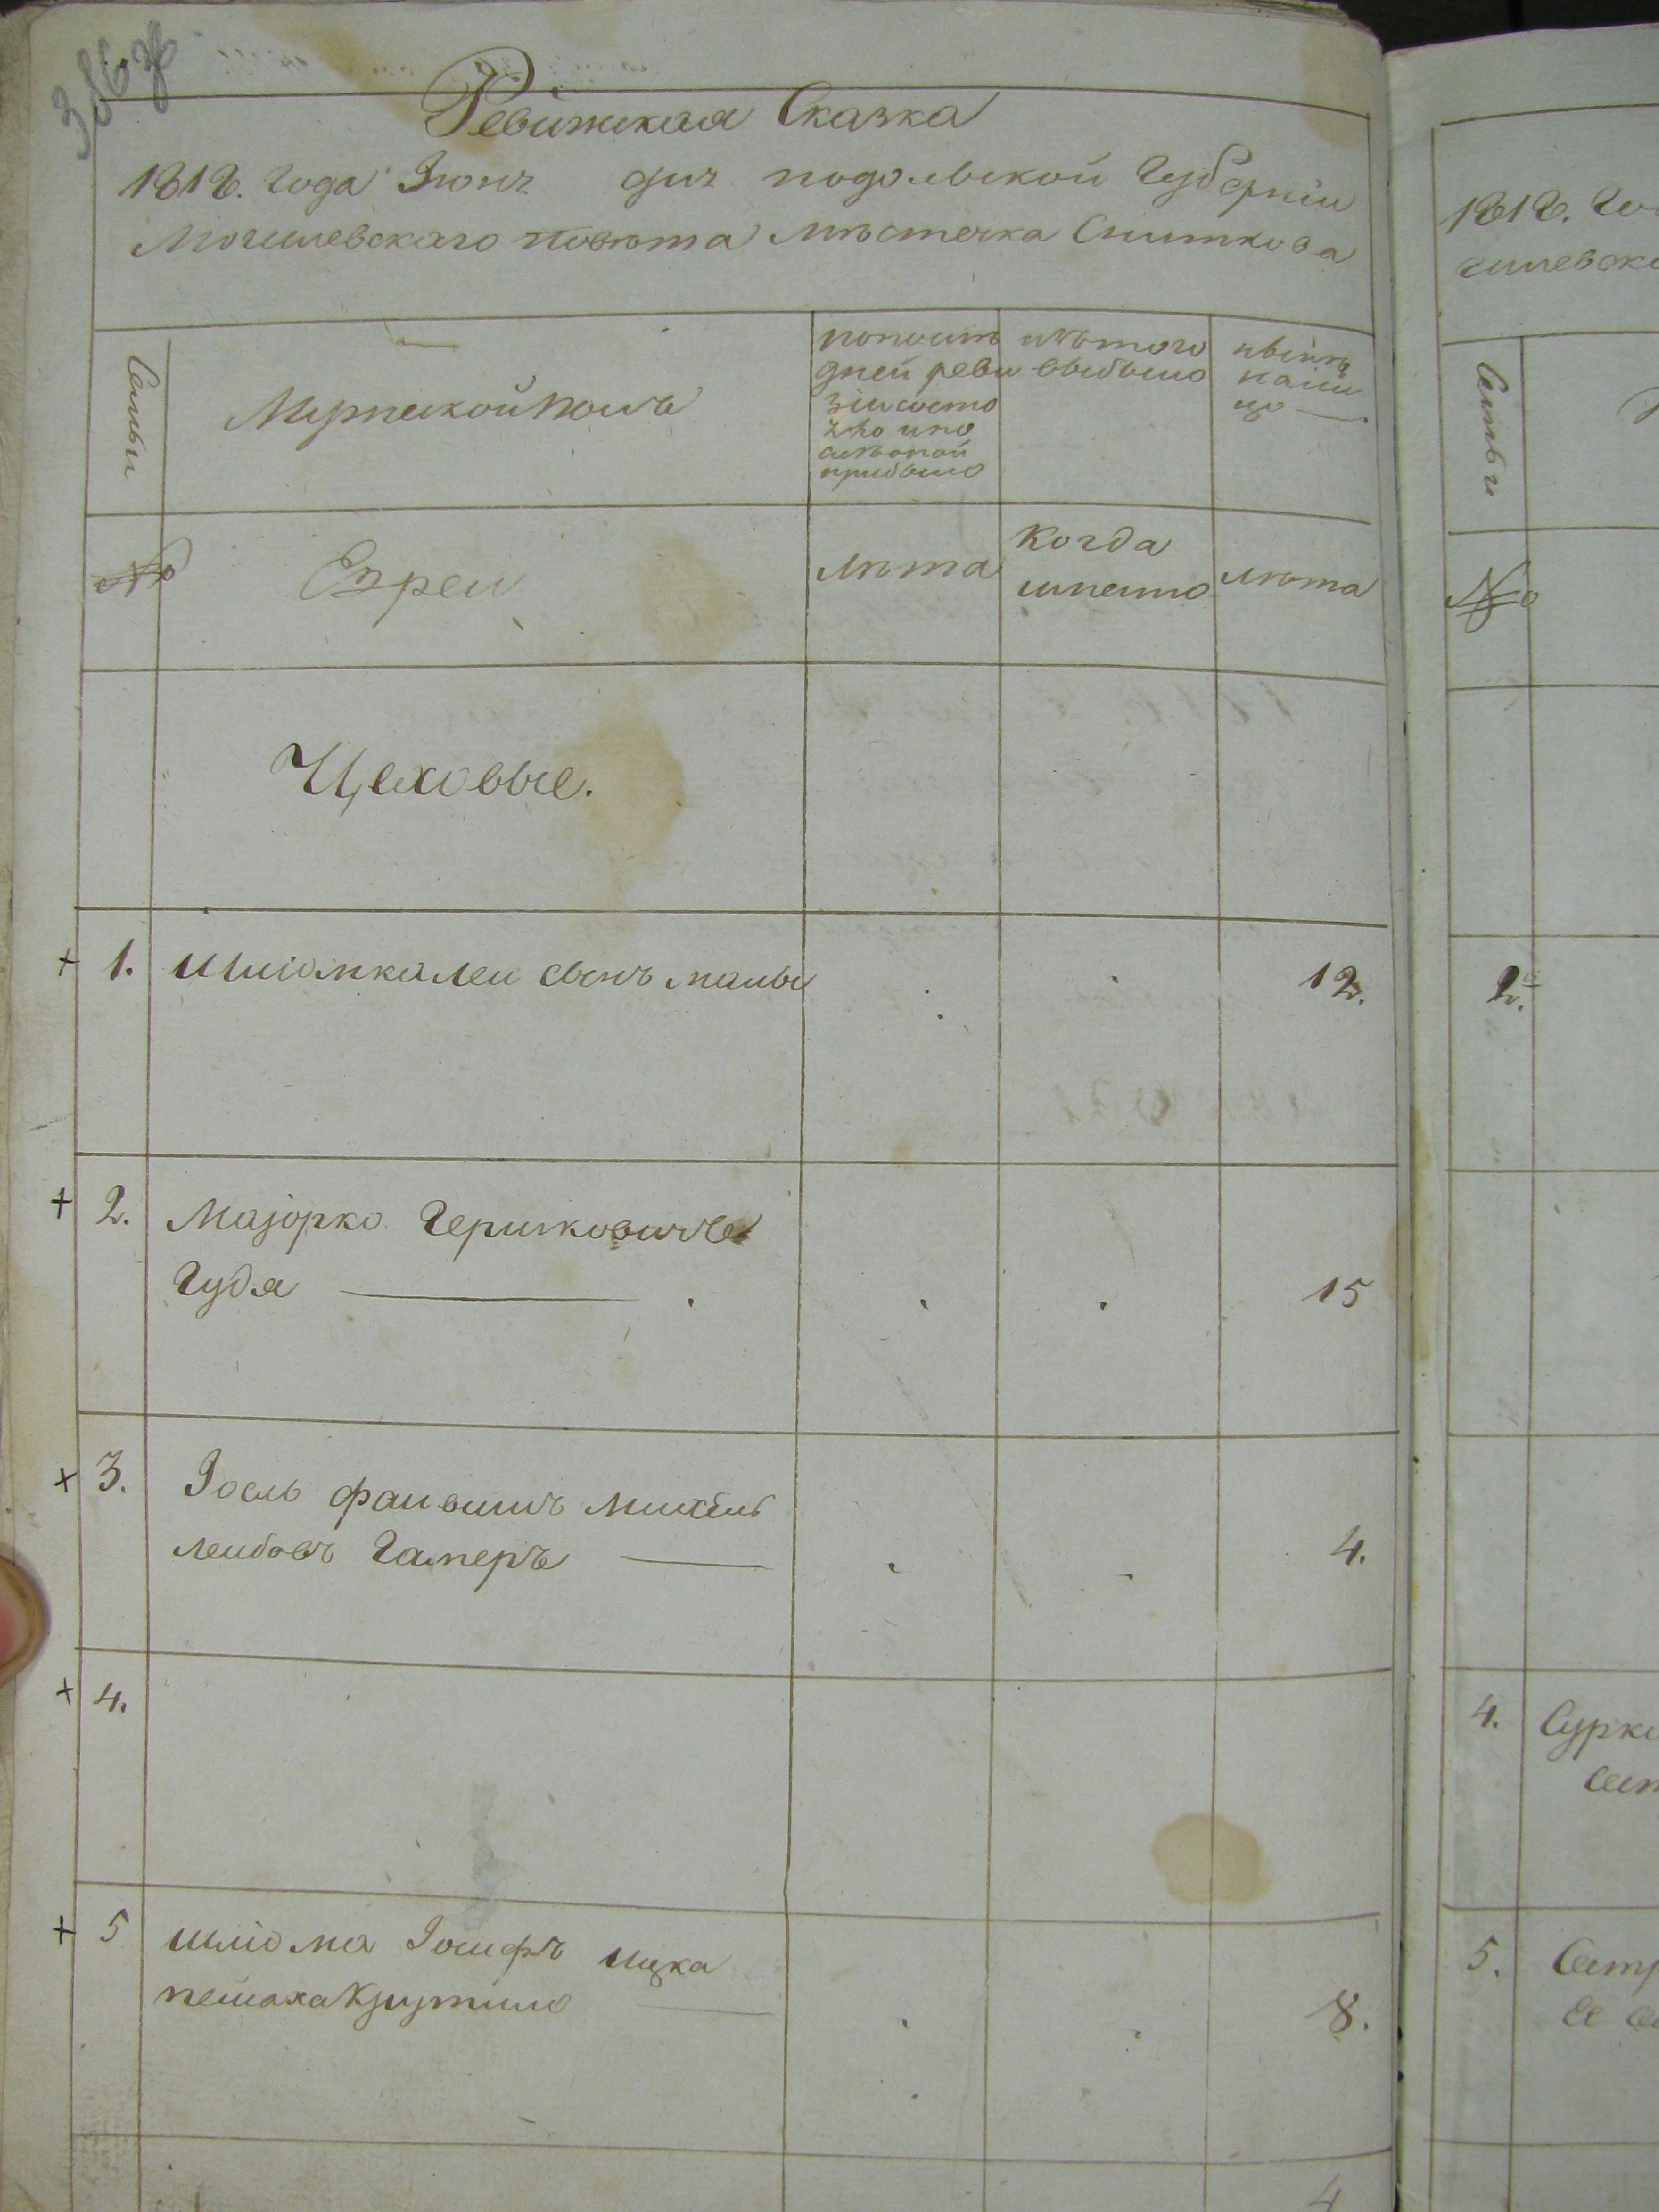 Ревижская Сказка
1818. года Іюнъ дня подольской Губерніи
Могилевскаго повѣта мѣстечка Сниткова
Семьи
Мужеской полъ
попосле
дней реви
зіи состо
яло и по
оной
прибыло
изтого
выбыло
нынѣ
налицо
№
Евреи
лѣта
Когда
имянно
лѣта
Цеховые.
1. Шліомка Леи сынъ малы 12.
2. Маіорко Гершковичъ
Гудя 15
3. Іосль файвишъ Михель
лейбовъ Гамеръ 4.
4.
5 шліома Іосифъ ицка
пейсаха 8.
4
1818. Го
гилевско
Семьи
№
2.
4. Сурка
5. Сестр
ее